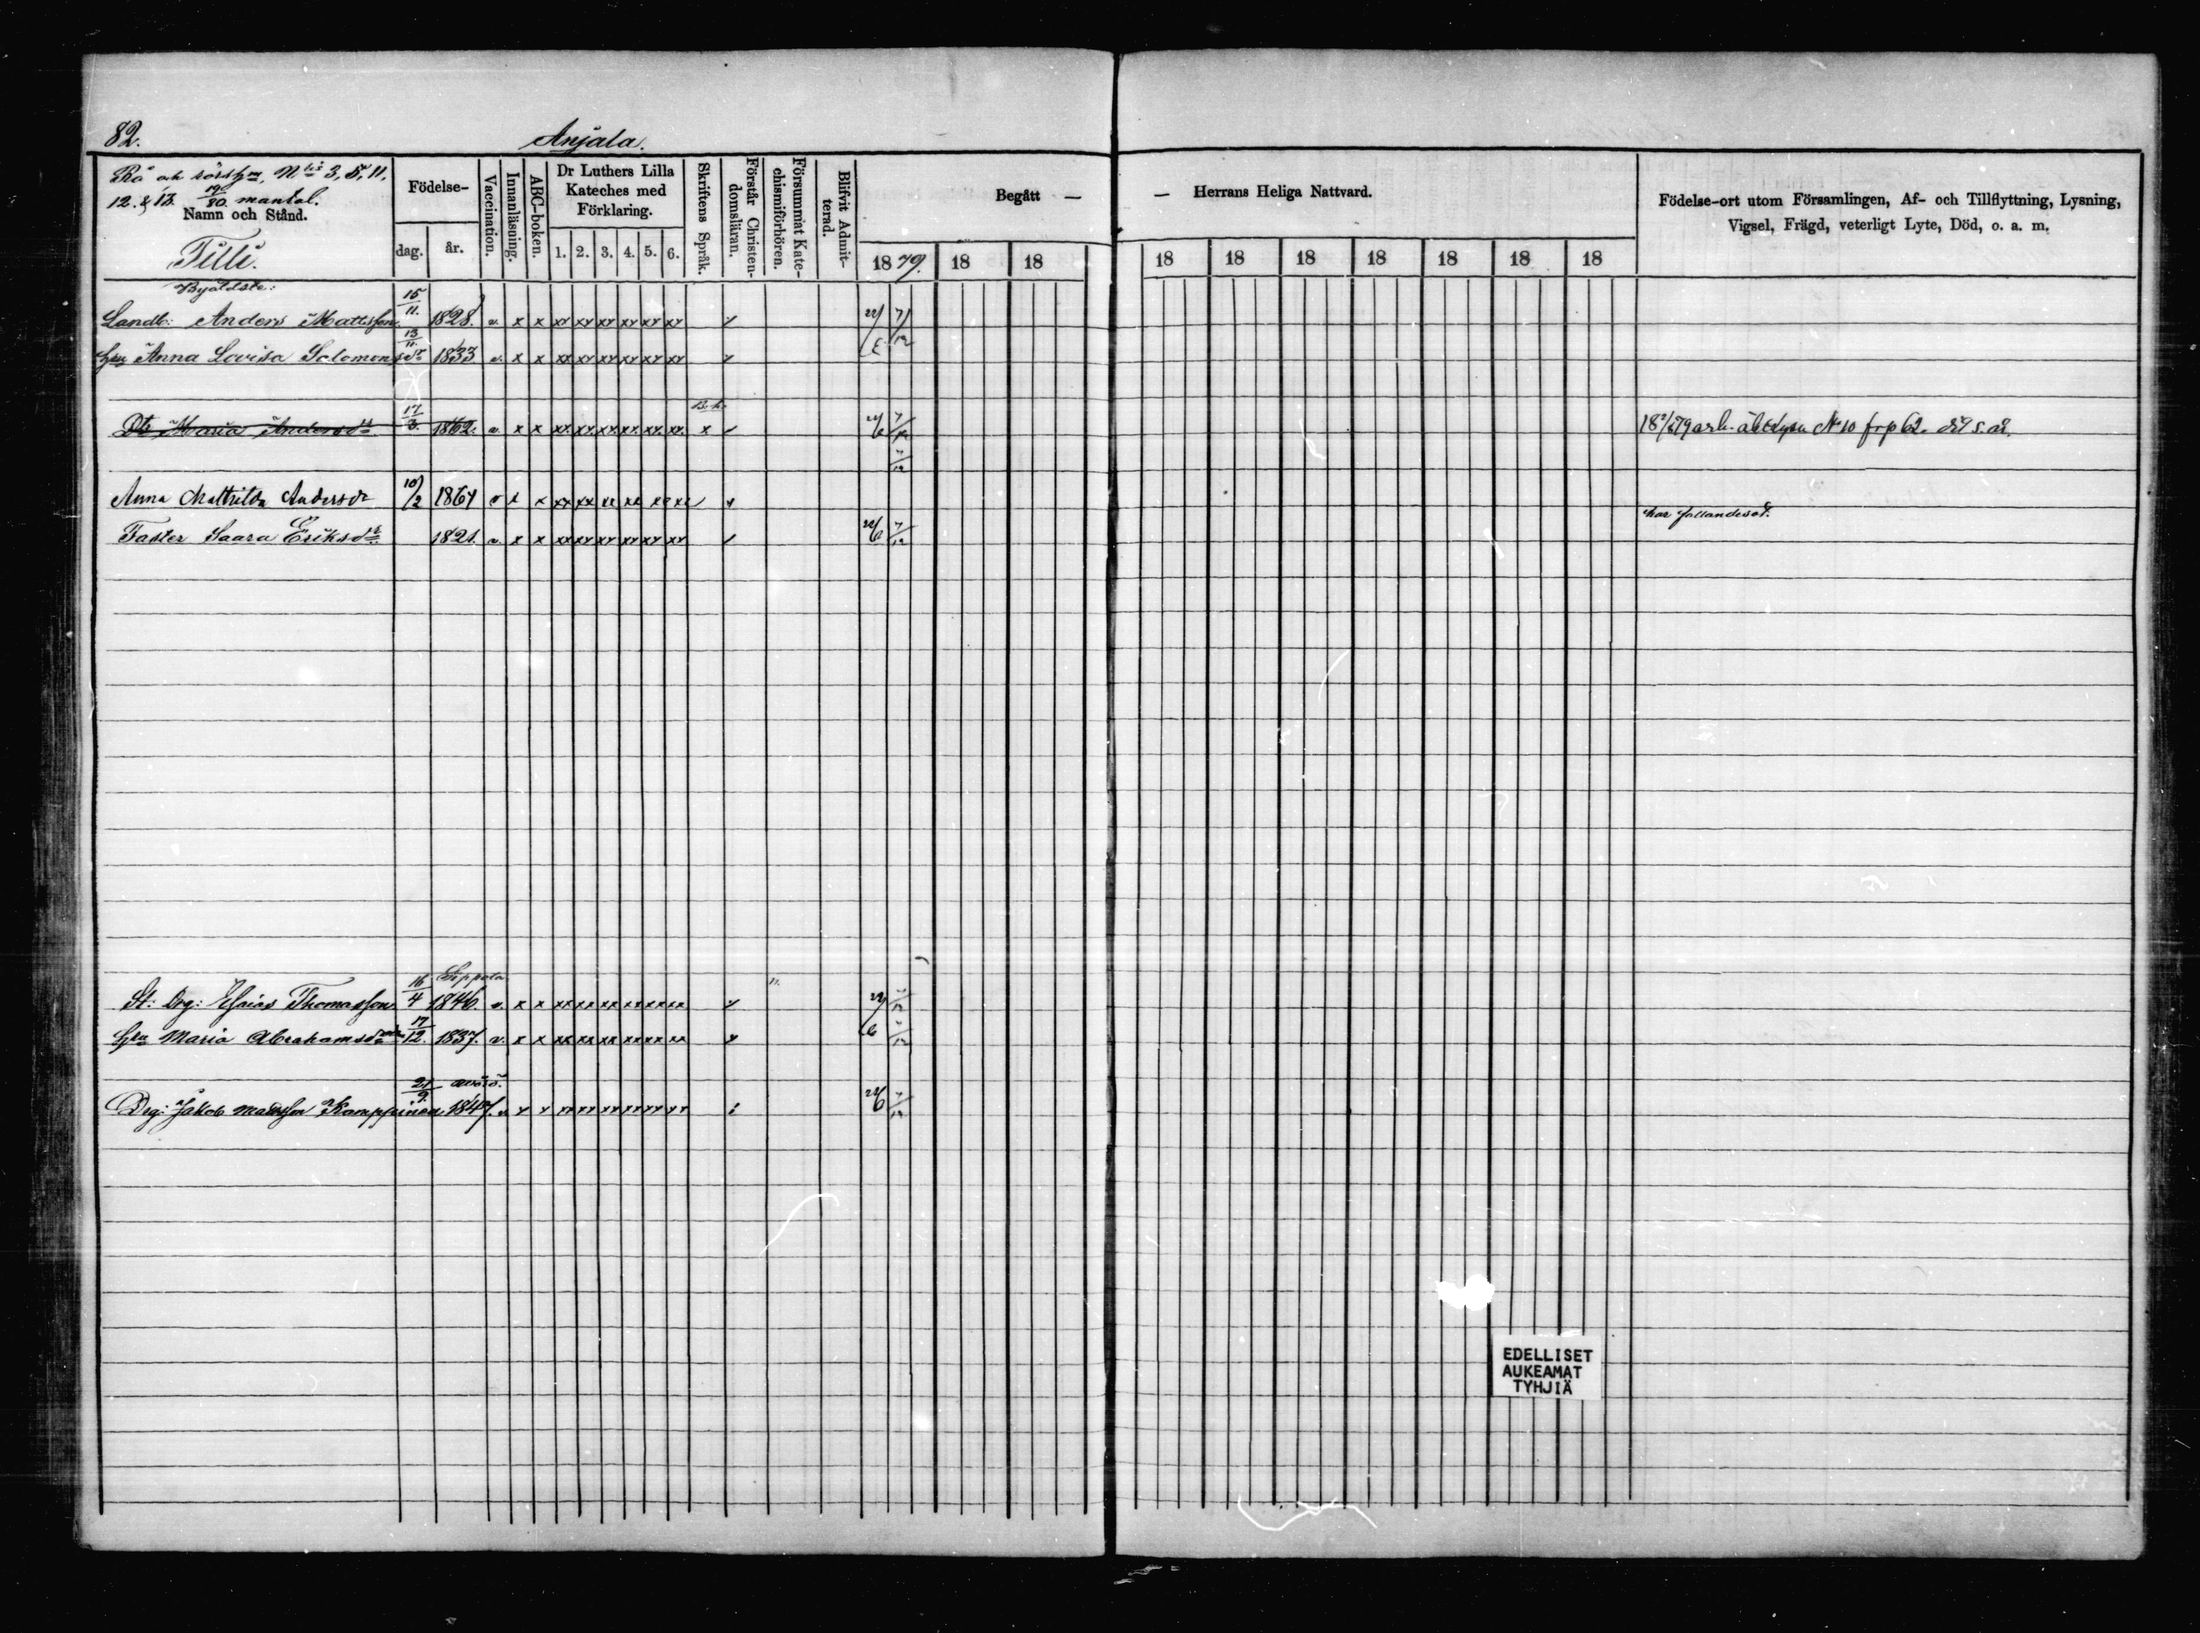 82.
Anjala.
Rå och rörsh:m, N:ris 3, 5, 11,
12. & 13. 19/80. mantal.
Namn och Stånd.
Tilli.
Födelse-
dag.
år.
Vaccination.
Innanläsning.
ABC-boken.
Dr Luthers Lilla
Kateches med
Förklaring.
1. 2. 3. 4. 5. 6.
Skriftens Språk.
Förstår Christen-
domsläran.
Försummat Kate-
chismiförhören.
Blifvit Admit-
terad.
Begått —
— Herrans Heliga Nattvard.
1879. 18 18
18 18 18 18 18 18 18
Födelse-ort utom Församlingen, Af- och Tillflyttning, Lysning,
Vigsel, Frägd, veterligt Lyte, Död, o. a. m.
Byäldste:
Landb: Anders Mattsson 15/11. 1828. v. x x xx xx xx xx xx xx 22/6 7/12
hu Anna Lovisa Salomonsdr 13/11. 1833 v. x x xx xx xx xx xx xx
Dtr Maria Andersdr. 17/3. 1862. v. x x xx xx. xx xx xx. xx. x 22/6 7/12 N:o 10 p 62.
7/12
Anna Mathilda Andersdr 10/2 1864 v x x xx xx xx xx xx xx
har fallandesot.
Faster Saara Eriksdr. 1821. v. x x xx xx xx xx xx xx 22/6 7/12
Sippola
St: Drg: Esaias Thomasson 16/4 1846. v. x x xx xx xx xx xx xx 22/6 7/12
hu Maria Abrahamsdr 17/12. 1837. v. x x xx xx xx xx xx xx 7/12
Drg: Jakob Mattsson Kamppinen 21/9. 1847. v x x xx xx xx xx xx xx 22/6 7/12
EDELLISET
AUKEAMAT
TYHJIÄ